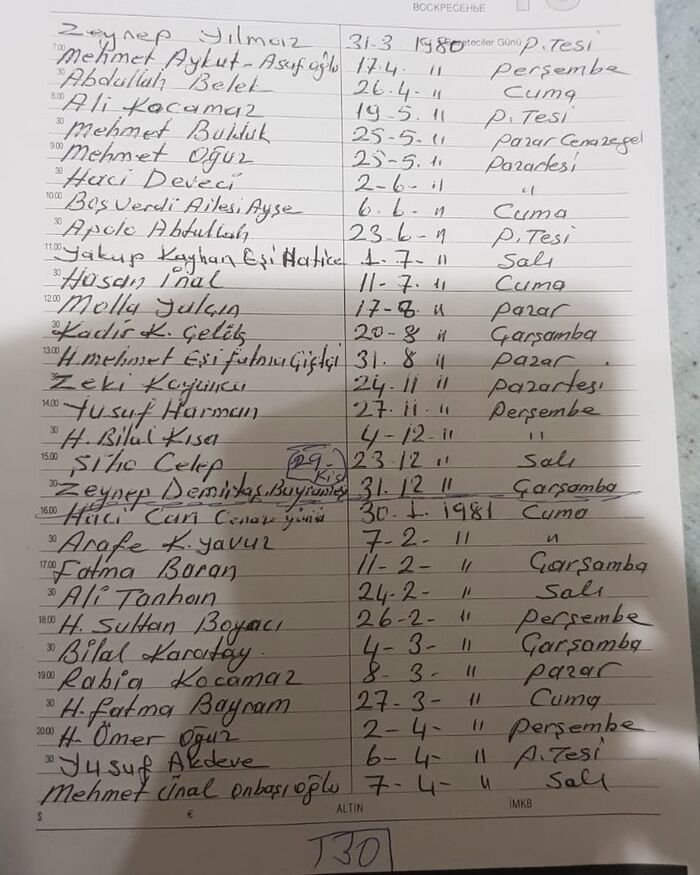 ВОСКРЕСЕНЬЕ
Zeynep Yılmaz 31-3 1980 Gazeteciler Günü P.Tesi
7.00 Mehmet Aykut-Asafoğlu 17.4. 11 Perşembe
30 Abdullah Belek 26-4- 11 Cuma
8.00 Ali Kocamaz 19-5. 11 P.Tesi
30 Mehmet Bulduk 25-5- 11 Pazar
9.00 Mehmet Oğuz 25-5- 11 Pazartesi
30 Haci Deveci 2-6- 11 "
10.00 Boş Verdi Ailesi Ayşe 6.6- 11 Cuma
30 Apolo Abdullah 23.6- 11 P.Tesi
11.00 Yakup Kayhan Eşi Hatice 1-7- 11 Salı
30 Hasan İnal 11-7. 11 Cuma
12.00 Molla Yalçın 17-8. 11 Pazar
30 Kadir K. Çelik 20-8 11 Çarşamba
13.00 H.Mehmet Eşi Fatma Çiftçi 31.8 11 Pazar
30 Zeki Koyuncu 24.11 11 Pazartesi
14.00 Yusuf Harman 27.11. 11 Perşembe
30 H. Bilal Kısa 4-12. 11 "
15.00 Şıho Celep 29- Kiş 23.12 11 Salı
30 Zeynep Demirtaş. 31.12 11 Çarşamba
16.00 Haci Can Cenaze günü 30.1.1981 Cuma
30 Arafe K.yavuz 7-2- 11 "
17.00 Fatma Baran 11-2- 11 Çarşamba
30 Ali Tanhan 24-2- 11 Salı
18.00 H. Sultan Boyacı 26-2- 11 Perşembe
30 Bilal Karatay. 4-3- 11 Çarşamba
19.00 Rabia Kocamaz 8-3- 11 Pazar
30 H. Fatma Bayram 27-3- 11 Cuma
20.00 H. Ömer Oğuz 2-4- 11 Perşembe
30 Yusuf Akdeve 6-4- 11 P.Tesi
Mehmet Ünal Onbaşıoğlu 7-4- 11 Salı
$ € ALTIN İMKB
130